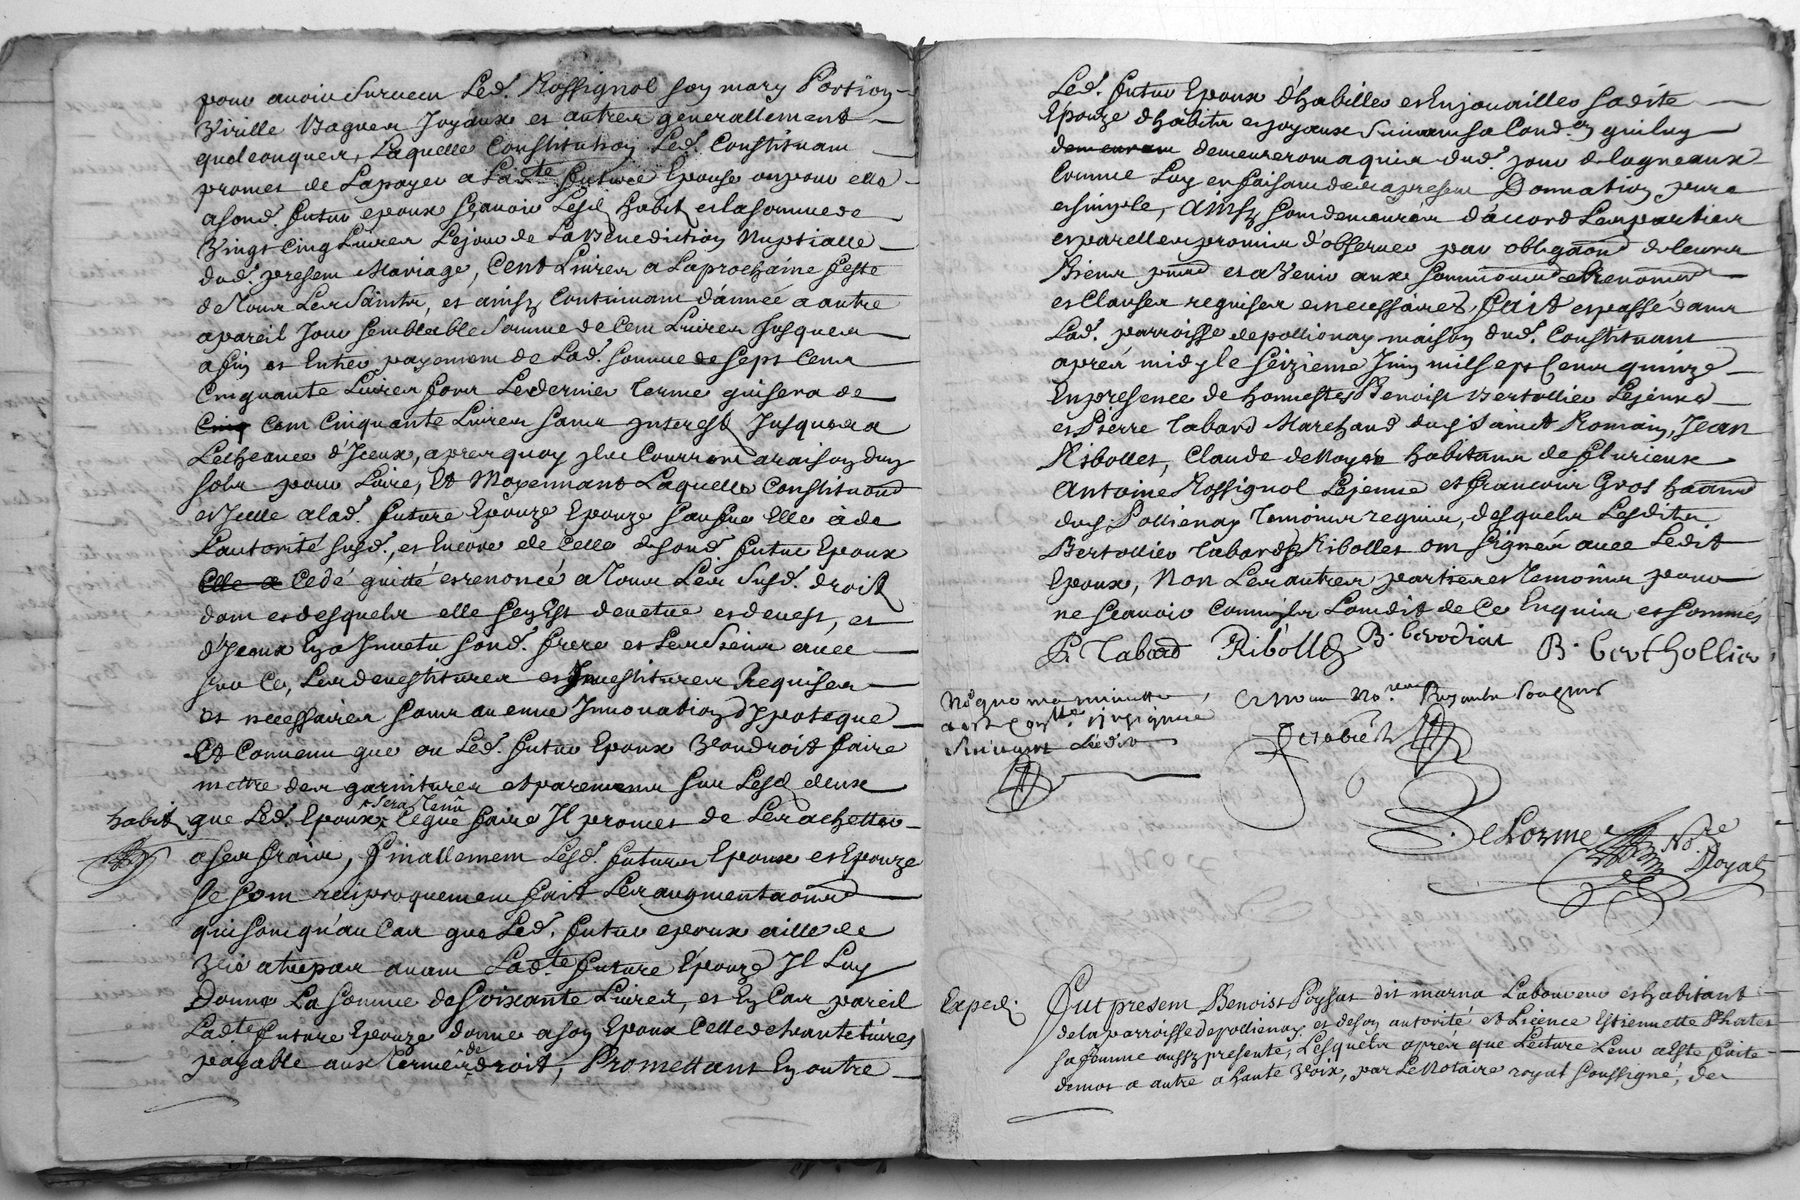 pour avoir survecu Led. Rossignol son mary Portion
Virille Bagues Joyaux et autres generallement
quelconques, Laquelle Constitution Led. Constituant
promet de Lapayer a Ladte. future Epouse ou pour elle
a sond. futur epoux sçavoir Lesd. habit et la somme de
Vingt cinq Livres Le jour de La Benediction Nuptialle
dud. present Mariage, Cent Livres a La prochaine feste
de Tous Les Saints, et ainsy Continuant d'année a autre
a pareil Jour semblable Somme de Cent Livres Jusques
a fin et Entier payement de Lad. somme de sept Cent
Cinquante Livres fors Le dernier Terme qui sera de
Cinq Cent Cinquante Livres sans Interest Jusques a
L'echeance d'Iceux, apres quoy ils Courront a raison d'un
solz pour Livre, Et Moyennant Laquelle Constituaond
et Icelle a lad. future Epouze Epouze sausue Elle à de
L'autorité susd., et Encore de Celle de sond. futur Epoux
Elle a Cedé quitté et renoncé a Tous Les Susd. droit
dont et desquels elle s'en Est devetue et devest, et
d'Iceux En a Invetu sond. frere et Les Siens avec
Les devestitures et Investitures Requises
et necessaires sans aucune Innovation d'Ipoteque
Et Convenu que ou Led. futur Epoux Voudroit faire
mettre des garnitures et parements sur Lesd. deux
habit que Led. Epoux sera Tenû Ceque faire Il promet de Les achetter
a ses frais, finallement Lesd. futurs Epoux et Epouze
se sont reciproquement fait Les augmentaond
qui sont qu'au Cas que Led. futur epoux aille de
Vie a trepas avant Ladte. future Epouze Il Luy
Donne La somme de soixante Livres, et En Cas pareil
Ladte. future Epouze donne a son Epoux Celle de trante Livres
payable aux Termes de droit, Promettant En outre
Led. futur Epoux d'habiller et Enjouailler sadite
Epouze d'habits et joyaux suivant sa Condon. qui luy
demeurant demeureront aquis dud. jour de
Comme Luy en faisant des a present Donnation pure
et simple, Ainsy sont demeurés d'accord Les parties
et par elles promis d'observer par obligaond de leurs
Biens pnts et a Venir aux soumissions et renonond
et Clauses requises et necessaires, fait et passé dans
Lad. parroisse de pollionay maison dud. Constituant
apres midy le seizieme Juin mil sept Cent quinze
En presence de honnestes Benoist Bertollier Lejeune
et Pierre Tabard Marchand dud. Sainct Romain, Jean
Ribollet, Claude de Noyer habitans de fleurieux
Antoine Rossignol Lejeune et francois Gros haand
dud. Pollienay Temoins requis, desquels Lesdits
Bertollier Tabard Ribollet ont signés avec Ledit
Epoux, Non Les autres parties et Temoins pour
ne sçavoir Comme ils L'ont dit de Ce Enquis et sommés
P. Tabard Ribollet B. Berthollier
Delorme No.re Royal
Exped.
fut present Benoist Poyssat dit marna Laboureur et habitant
de la parroisse de pollienay, et de son autorité et Licence Estiennette
sa femme aussy presente, Lesquels apres que Lecture Leur a Esté faite
de mot a autre a haute Voix, par Le Notaire royal soussigné, des